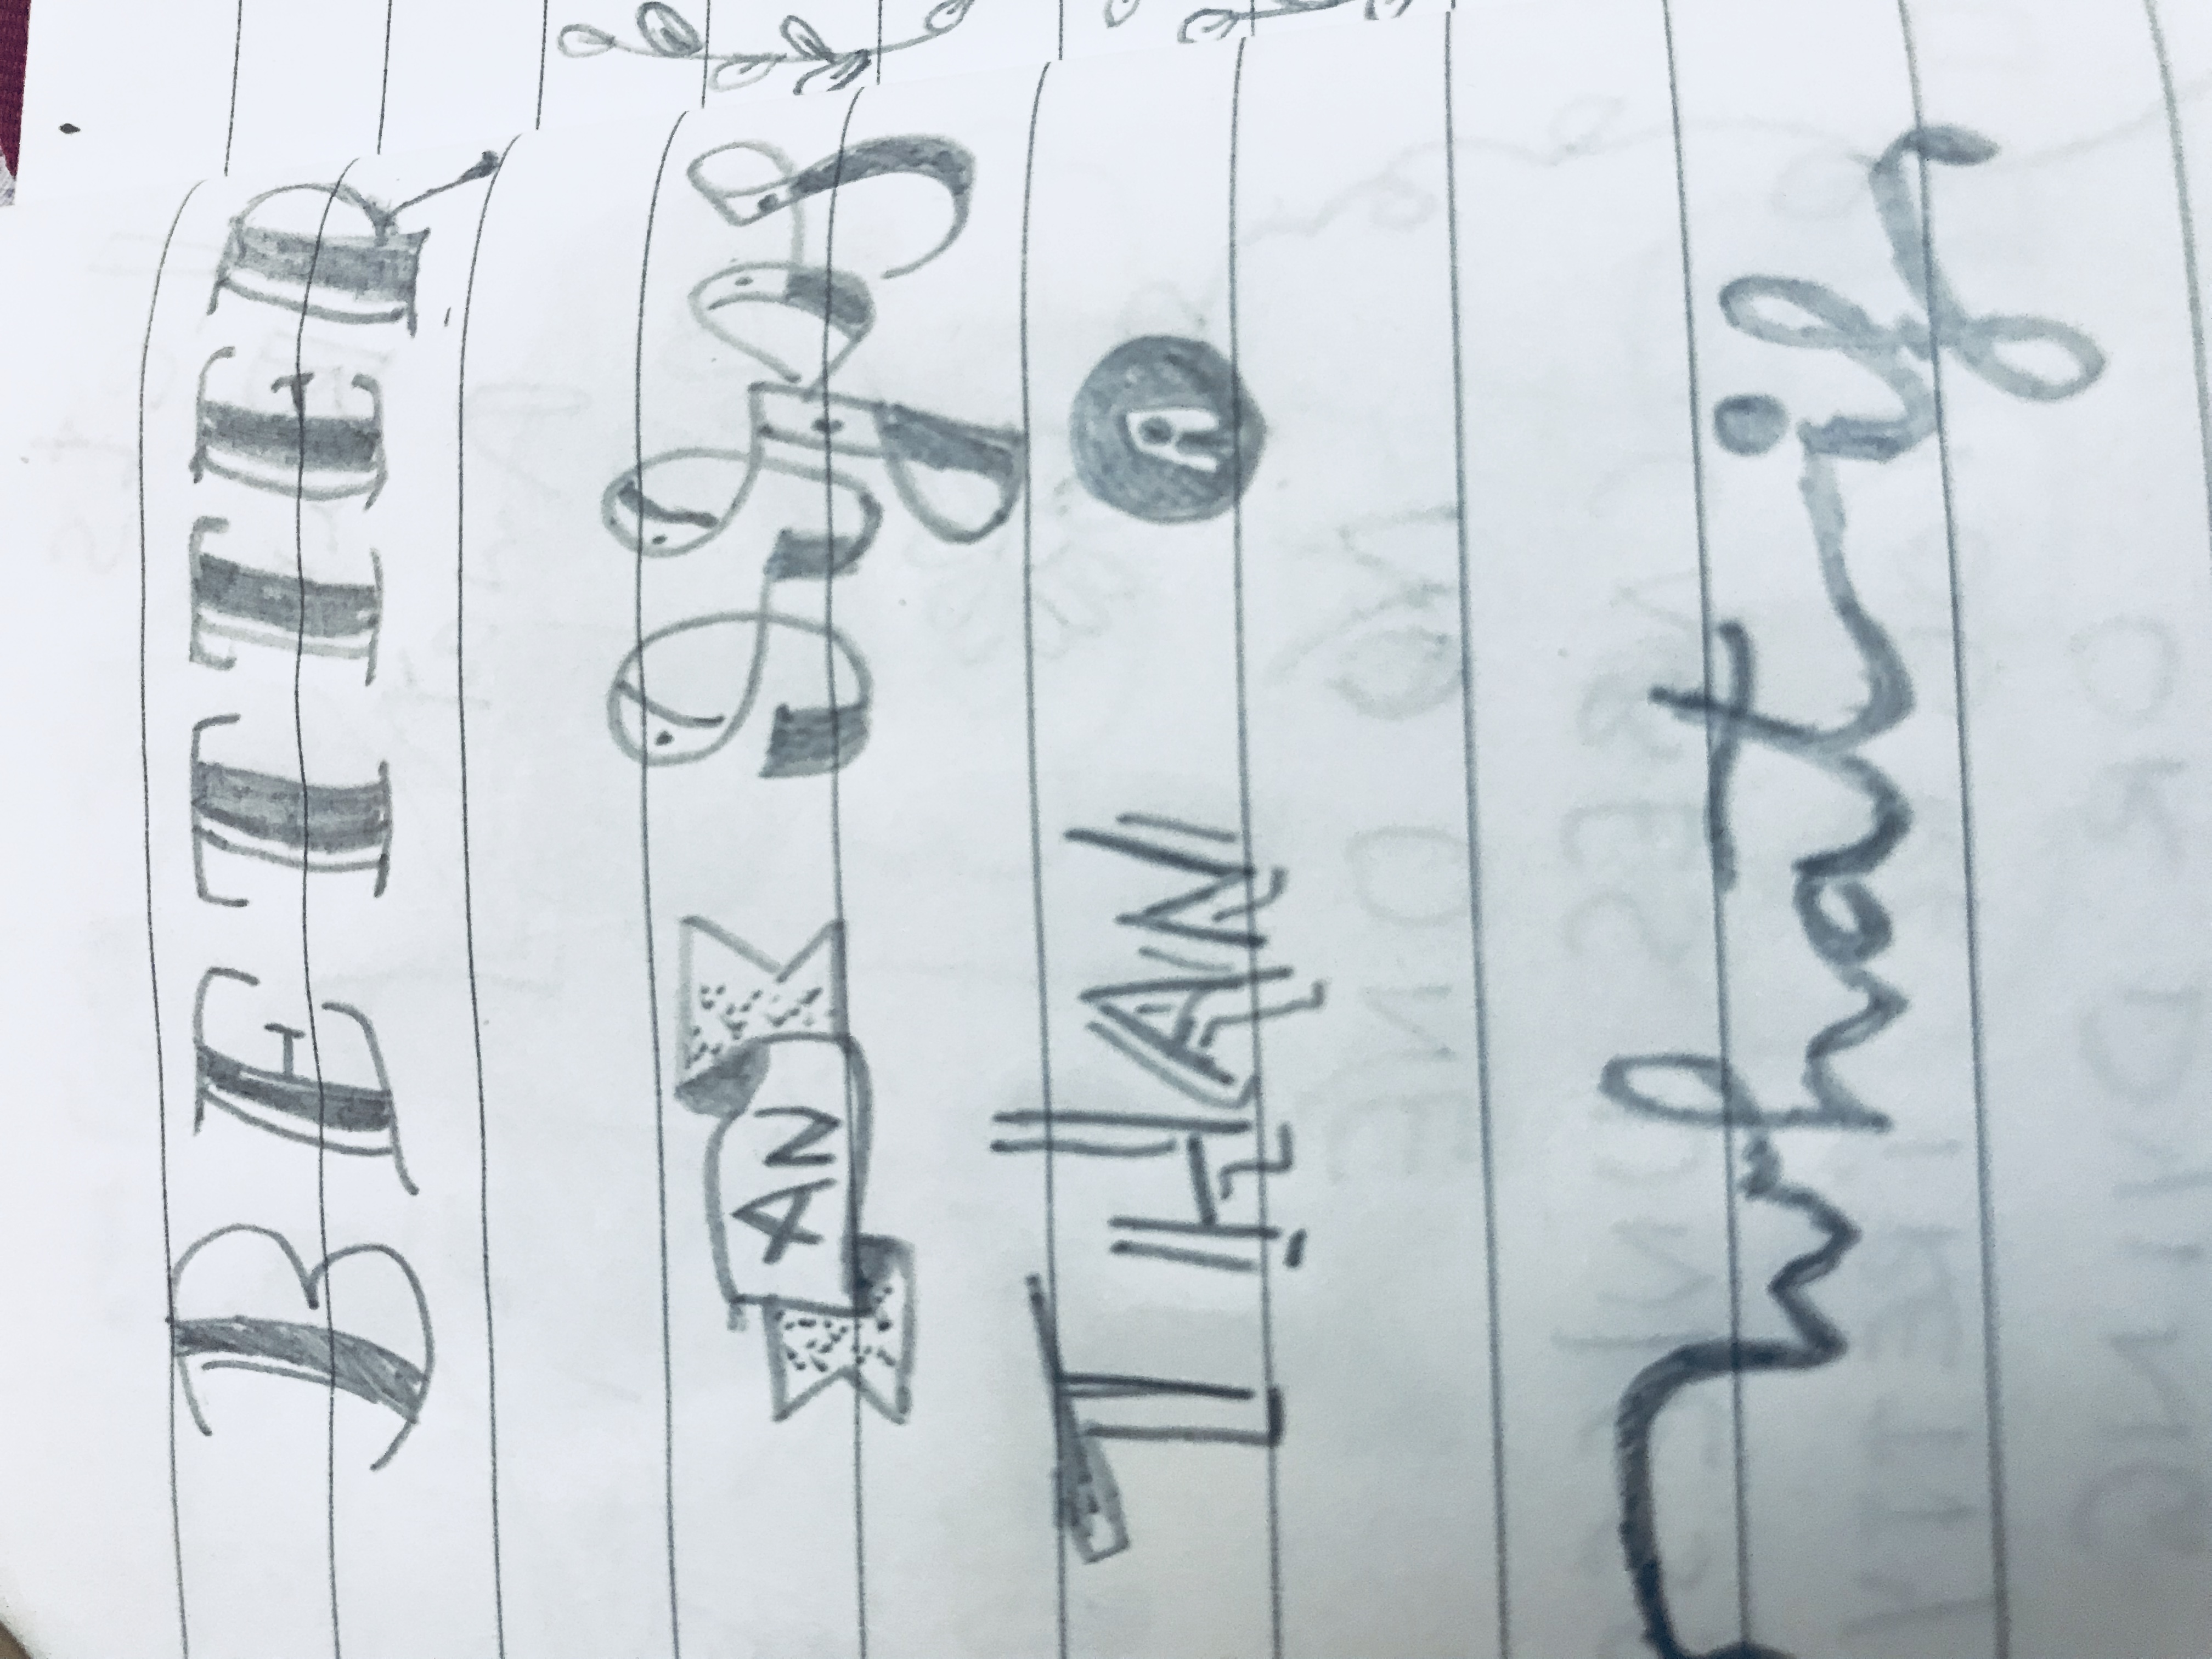 BETTER
AN Oops
THAN A
what if